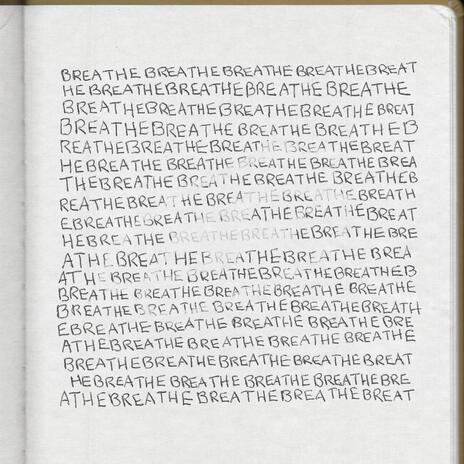 BREATHE BREATHE BREATHE BREATHEBREAT
HE BREATHEBREATHE BREATHE BREATHE
BREATHEBREATHE BREATHE BREATHE BREAT
BREATHEBREATHE BREATHE BREATHE B
REATHEBREATHE BREATHE BREATHE BREAT
HEBREATHE BREATHE BREATHE BREATHE BREA
THEBREATHE BREATHE BREATHE BREATHE B
REATHE BREAT HE BREATHE BREATHE BREATH
EBREATHEBREATHE BREATHE BREATHE BREAT
HEBREATHE BREATHEBREATHE BREATHE BRE
ATHE BREATHE BREATHE BREATHE BREA
ATHE BREATHE BREATHE BREATHE BREATHE B
BREATHE BREATHE BREATHE BREATHE BREATHE
BREATHE BREATHE BREATHEBREATHEBREATH
EBREATHE BREATHE BREATHE BREATHE BRE
ATHEBREATHE BREATHE BREATHE BREATHE
BREATHEBREATHE BREATHE BREATHE BREAT
HE BREATHE BREATHE BREATHE BREATHE BRE
ATHEBREATHE BREATHEBREATHE BREAT